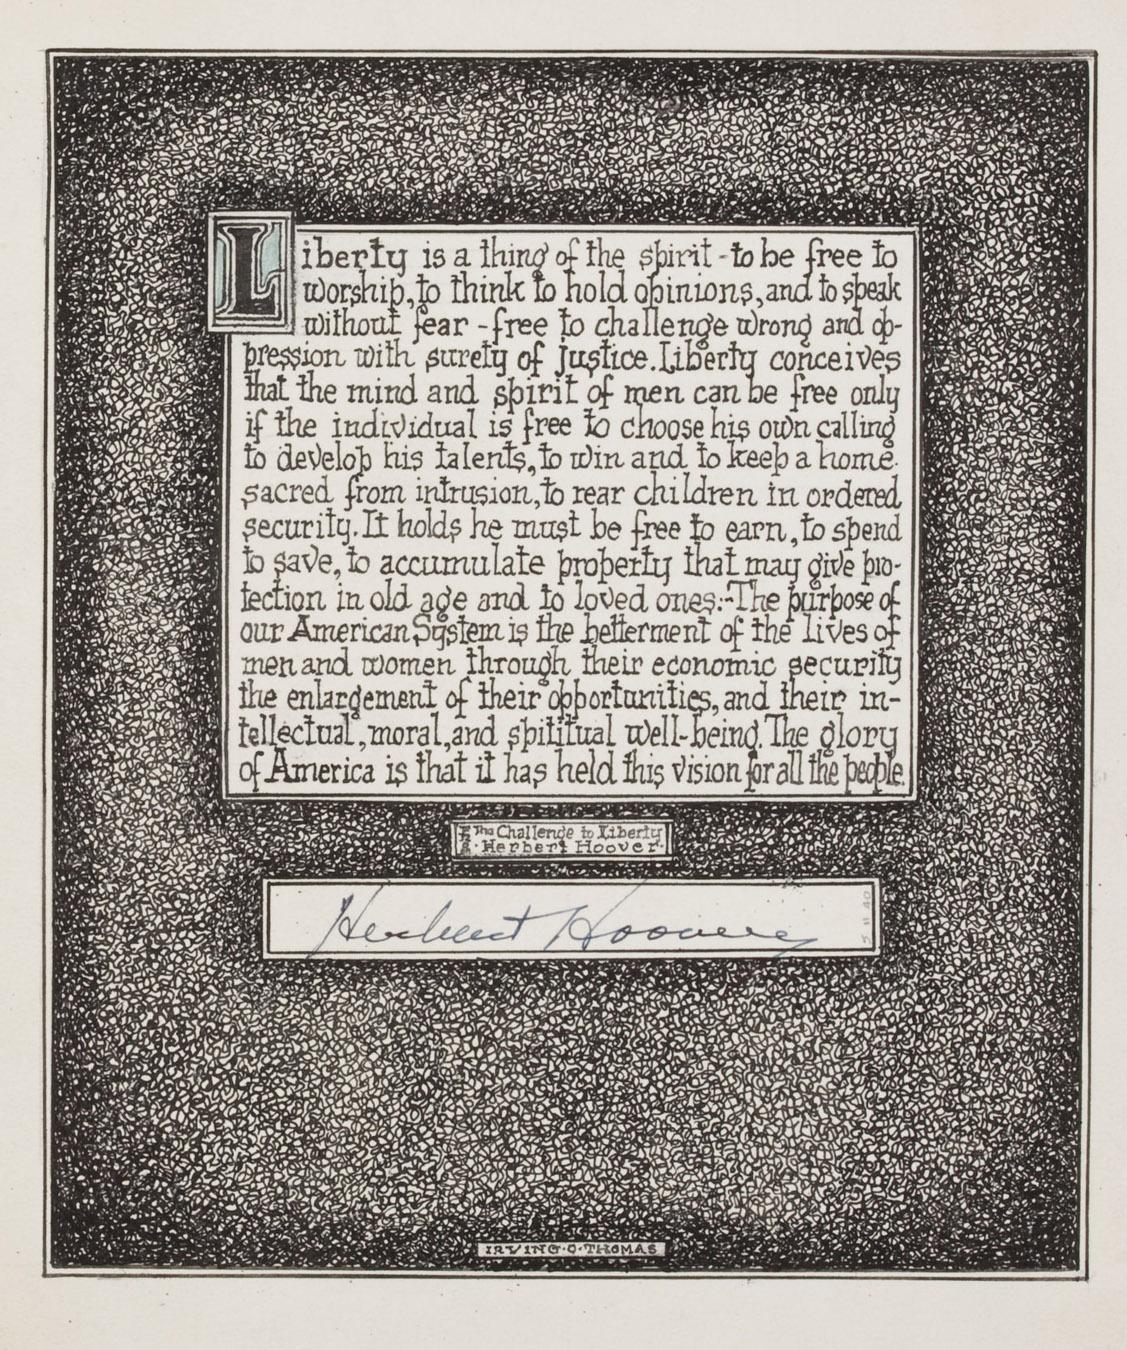 Liberty is a thing of the spirit - to be free to
worship, to think to hold opinions, and to speak
without fear - free to challenge wrong and op-
pression with surety of justice. Liberty conceives
that the mind and spirit of men can be free only
if the individual is free to choose his own calling
to develop his talents, to win and to keep a home
sacred from intrusion, to rear children in ordered
security. It holds he must be free to earn, to spend
to save, to accumulate property that may give pro-
tection in old age and to loved ones:-The purpose of
our American System is the betterment of the lives of
men and women through their economic security
the enlargement of their opportunities, and their in-
tellectual, moral, and spititual well-being. The glory
of America is that it has held this vision for all the people.
The Challenge to Liberty
Herbert Hoover
Herbert Hoover
IRVING·O·THOMAS